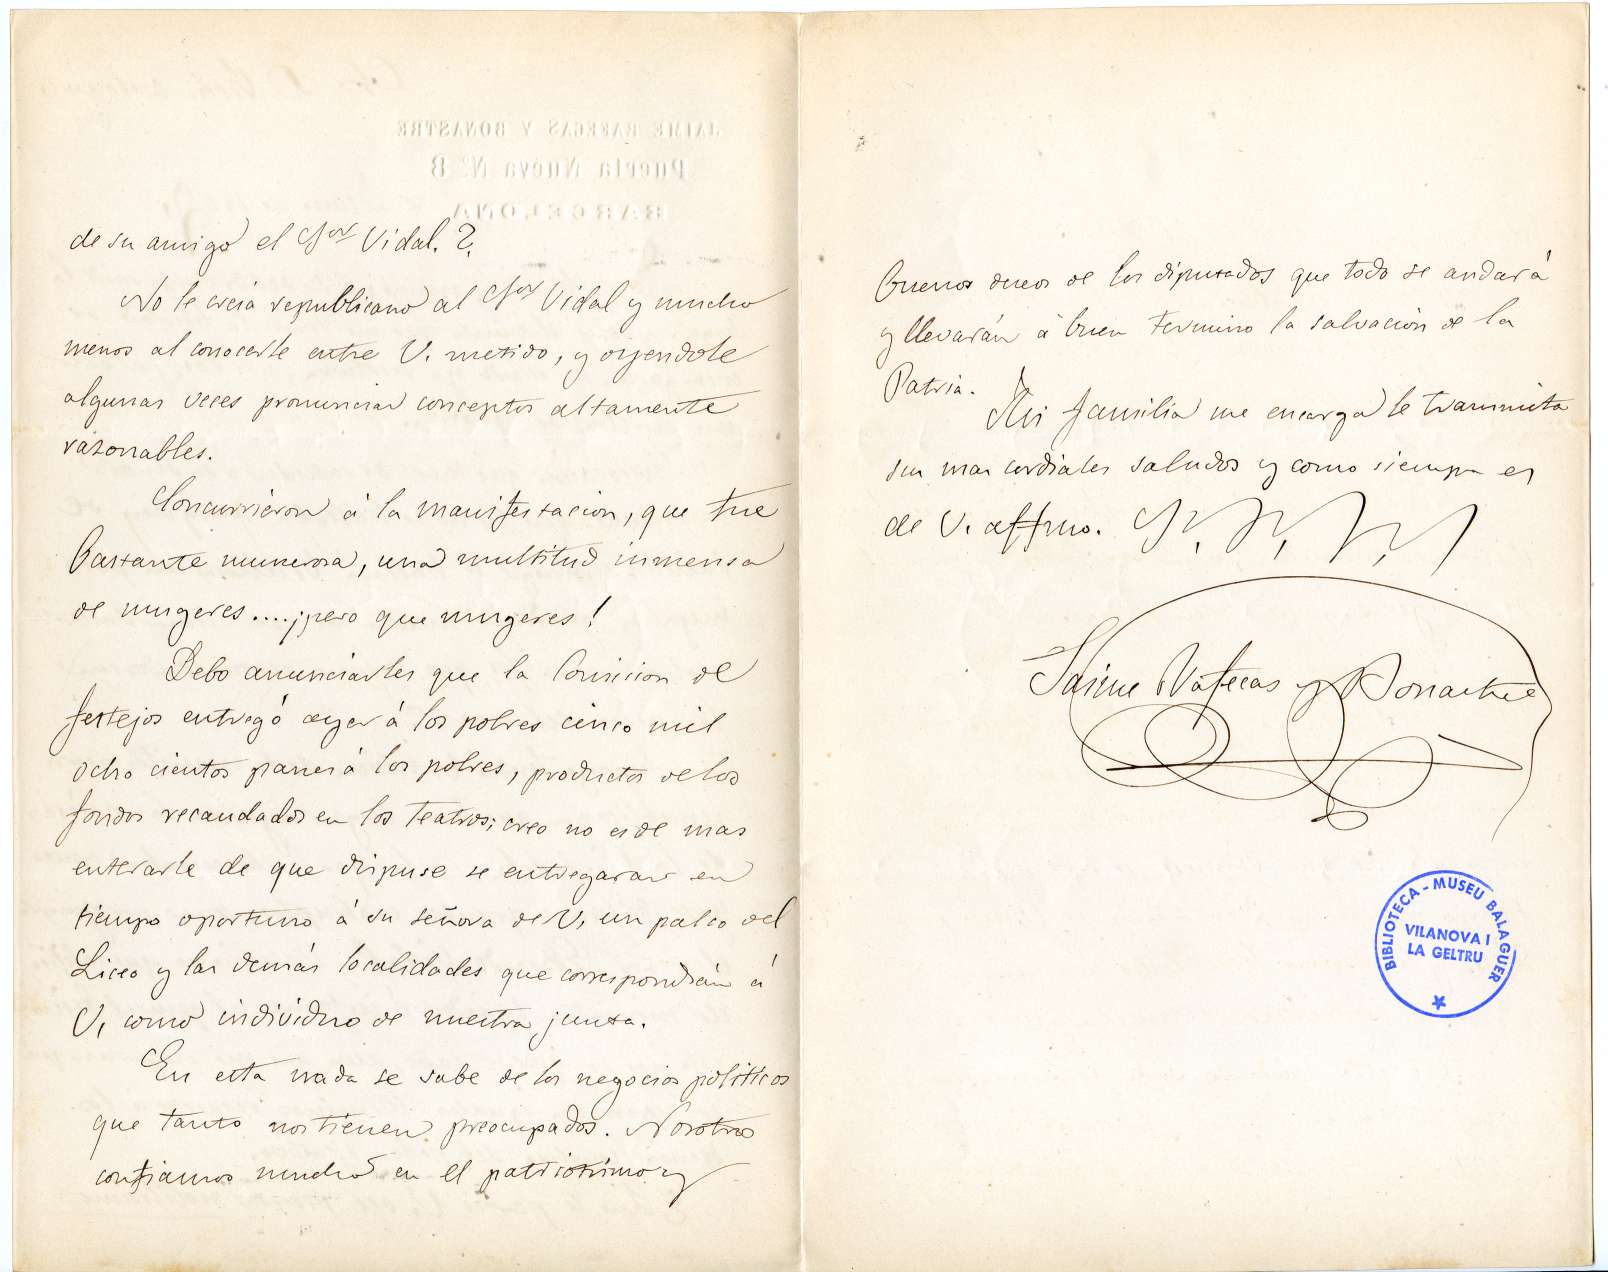 de su amigo el Sor Vidal. ?.
No le creia republicano al Sor Vidal y mucho
menos al conocerle entre V. metido, y oyendole
algunas veces pronunciar conceptos altamente
razonables.
Concurrieron á la manifestacion, que fue
bastante numerosa, una multitud inmensa
de mugeres....¡pero que mugeres!
Debo anunciarles que la Comision de
festejos entregó ayer á los pobres cinco mil
ocho cientos panes á los pobres, productos de los
fondos recaudados en los teatros; creo no es de mas
enterarle de que dispuse se entregaran en
tiempo oportuno á su señora de V, un palco del
Liceo y las demás localidades que correspondián á
V, como individuo de nuestra junta.
En esta nada se sabe de los negocios politicos
que tanto nos tienen preocupados. Nosotros
confiamos mucho en el patriotismo y
buenos deseos de los diputados que todo se andará
y llevarán á buen termino la salvación de la
Patria.
Mi familia me encarga le transmita
sus mas cordiales saludos y como siempre es
de V. affmo. S, S,
Jaime Rafecas y Bonastre
JAIME RAFECAS Y BONASTRE
Puerta Nueva Nº 8
BARCELONA
BIBLIOTECA - MUSEU BALAGUER
VILANOVA I
LA GELTRU